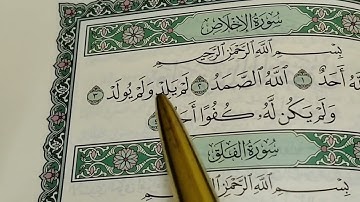 سُورَةُ الإِخْلَاصِ
بِسْمِ اللَّهِ الرَّحْمَٰنِ الرَّحِيمِ
أَحَدٌ ١ اللَّهُ الصَّمَدُ ٢ لَمْ يَلِدْ وَلَمْ يُولَدْ ٣
وَلَمْ يَكُن لَّهُ كُفُوًا
سُورَةُ الفَلَقِ
بِسْمِ اللَّهِ الرَّحْمَٰنِ الرَّحِيمِ